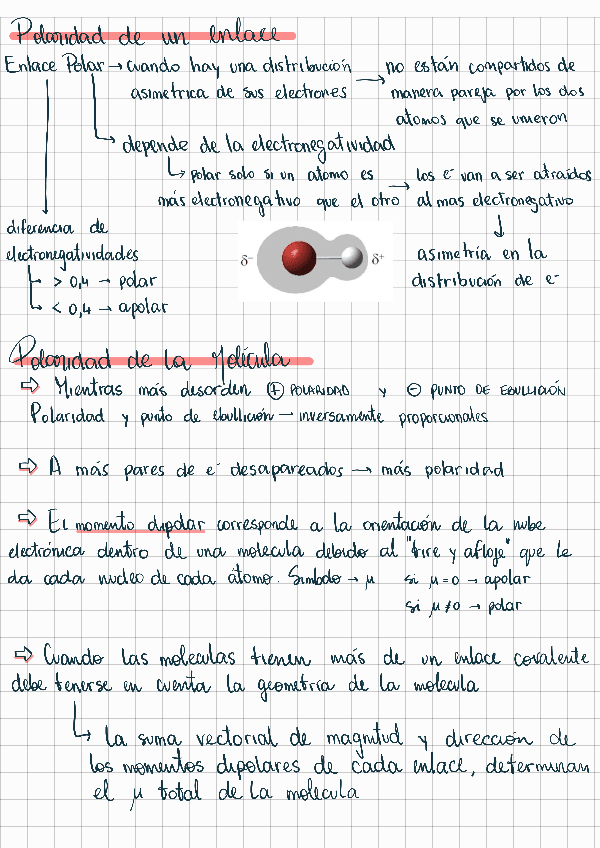 Polaridad de un enlace
Enlace Polar → cuando hay una distribución asimetrica de sus electrones → no están compartidos de manera pareja por los dos atomos que se unieron
↳ depende de la electronegatividad
↳ polar solo si un atomo es más electronegativo que el otro → los e⁻ van a ser atraidos al mas electronegativo
↓
asimetría en la distribución de e⁻
diferencia de
electronegatividades
↳ > 0,4 → polar
↳ < 0,4 → apolar
δ⁻ δ⁺
Polaridad de la Molécula
⇨ Mientras más desorden ⊕ POLARIDAD y ⊖ PUNTO DE EBULLICIÓN
Polaridad y punto de ebullición — inversamente proporcionales
⇨ A más pares de e⁻ desapareados → más polaridad
⇨ El momento dipolar corresponde a la orientación de la nube
electrónica dentro de una molecula debido al "tire y afloje" que le
da cada nucleo de cada átomo. Simbolo → μ si μ=0 → apolar
si μ≠0 → polar
⇨ Cuando las moleculas tienen más de un enlace covalente
debe tenerse en cuenta la geometría de la molecula
↳ la suma vectorial de magnitud y dirección de
los momentos dipolares de cada enlace, determinan
el μ total de la molecula